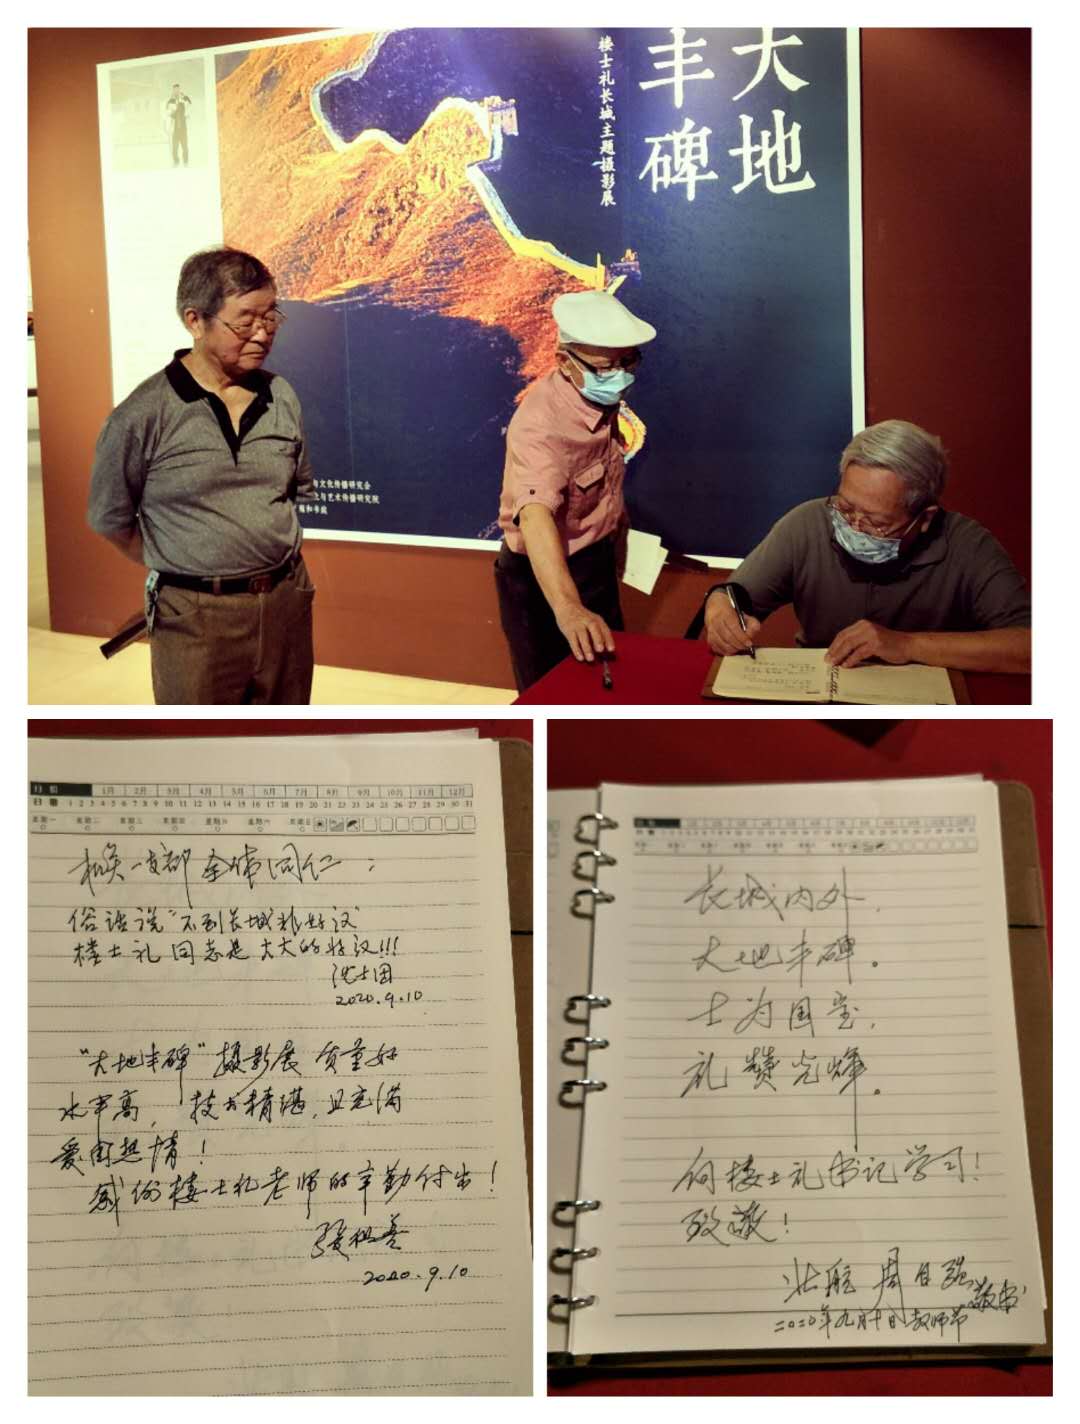 大地
丰碑
楼士礼长城主题摄影展
与文化传播研究会
与艺术传播研究院
雍和书庭
日期 1月 2月 3月 4月 5月 6月 7月 8月 9月 10月 11月 12月
日期 1 2 3 4 5 6 7 8 9 10 11 12 13 14 15 16 17 18 19 20 21 22 23 24 25 26 27 28 29 30 31
星期一 星期二 星期三 星期四 星期五 星期六 星期日
机关一支部全体同仁：
俗话说“不到长城非好汉”
楼士礼同志是大大的好汉!!!
沈士团
2020.9.10
“大地丰碑”摄影展质量好
水平高，技术精湛，且充满
爱国热情！
感谢楼士礼老师的辛勤付出！
张祖善
2020.9.10
长城内外，
大地丰碑。
士为国宝，
礼赞光辉。
向楼士礼书记学习！
致敬！
北航 周自强 敬书
二〇二〇年九月十日教师节